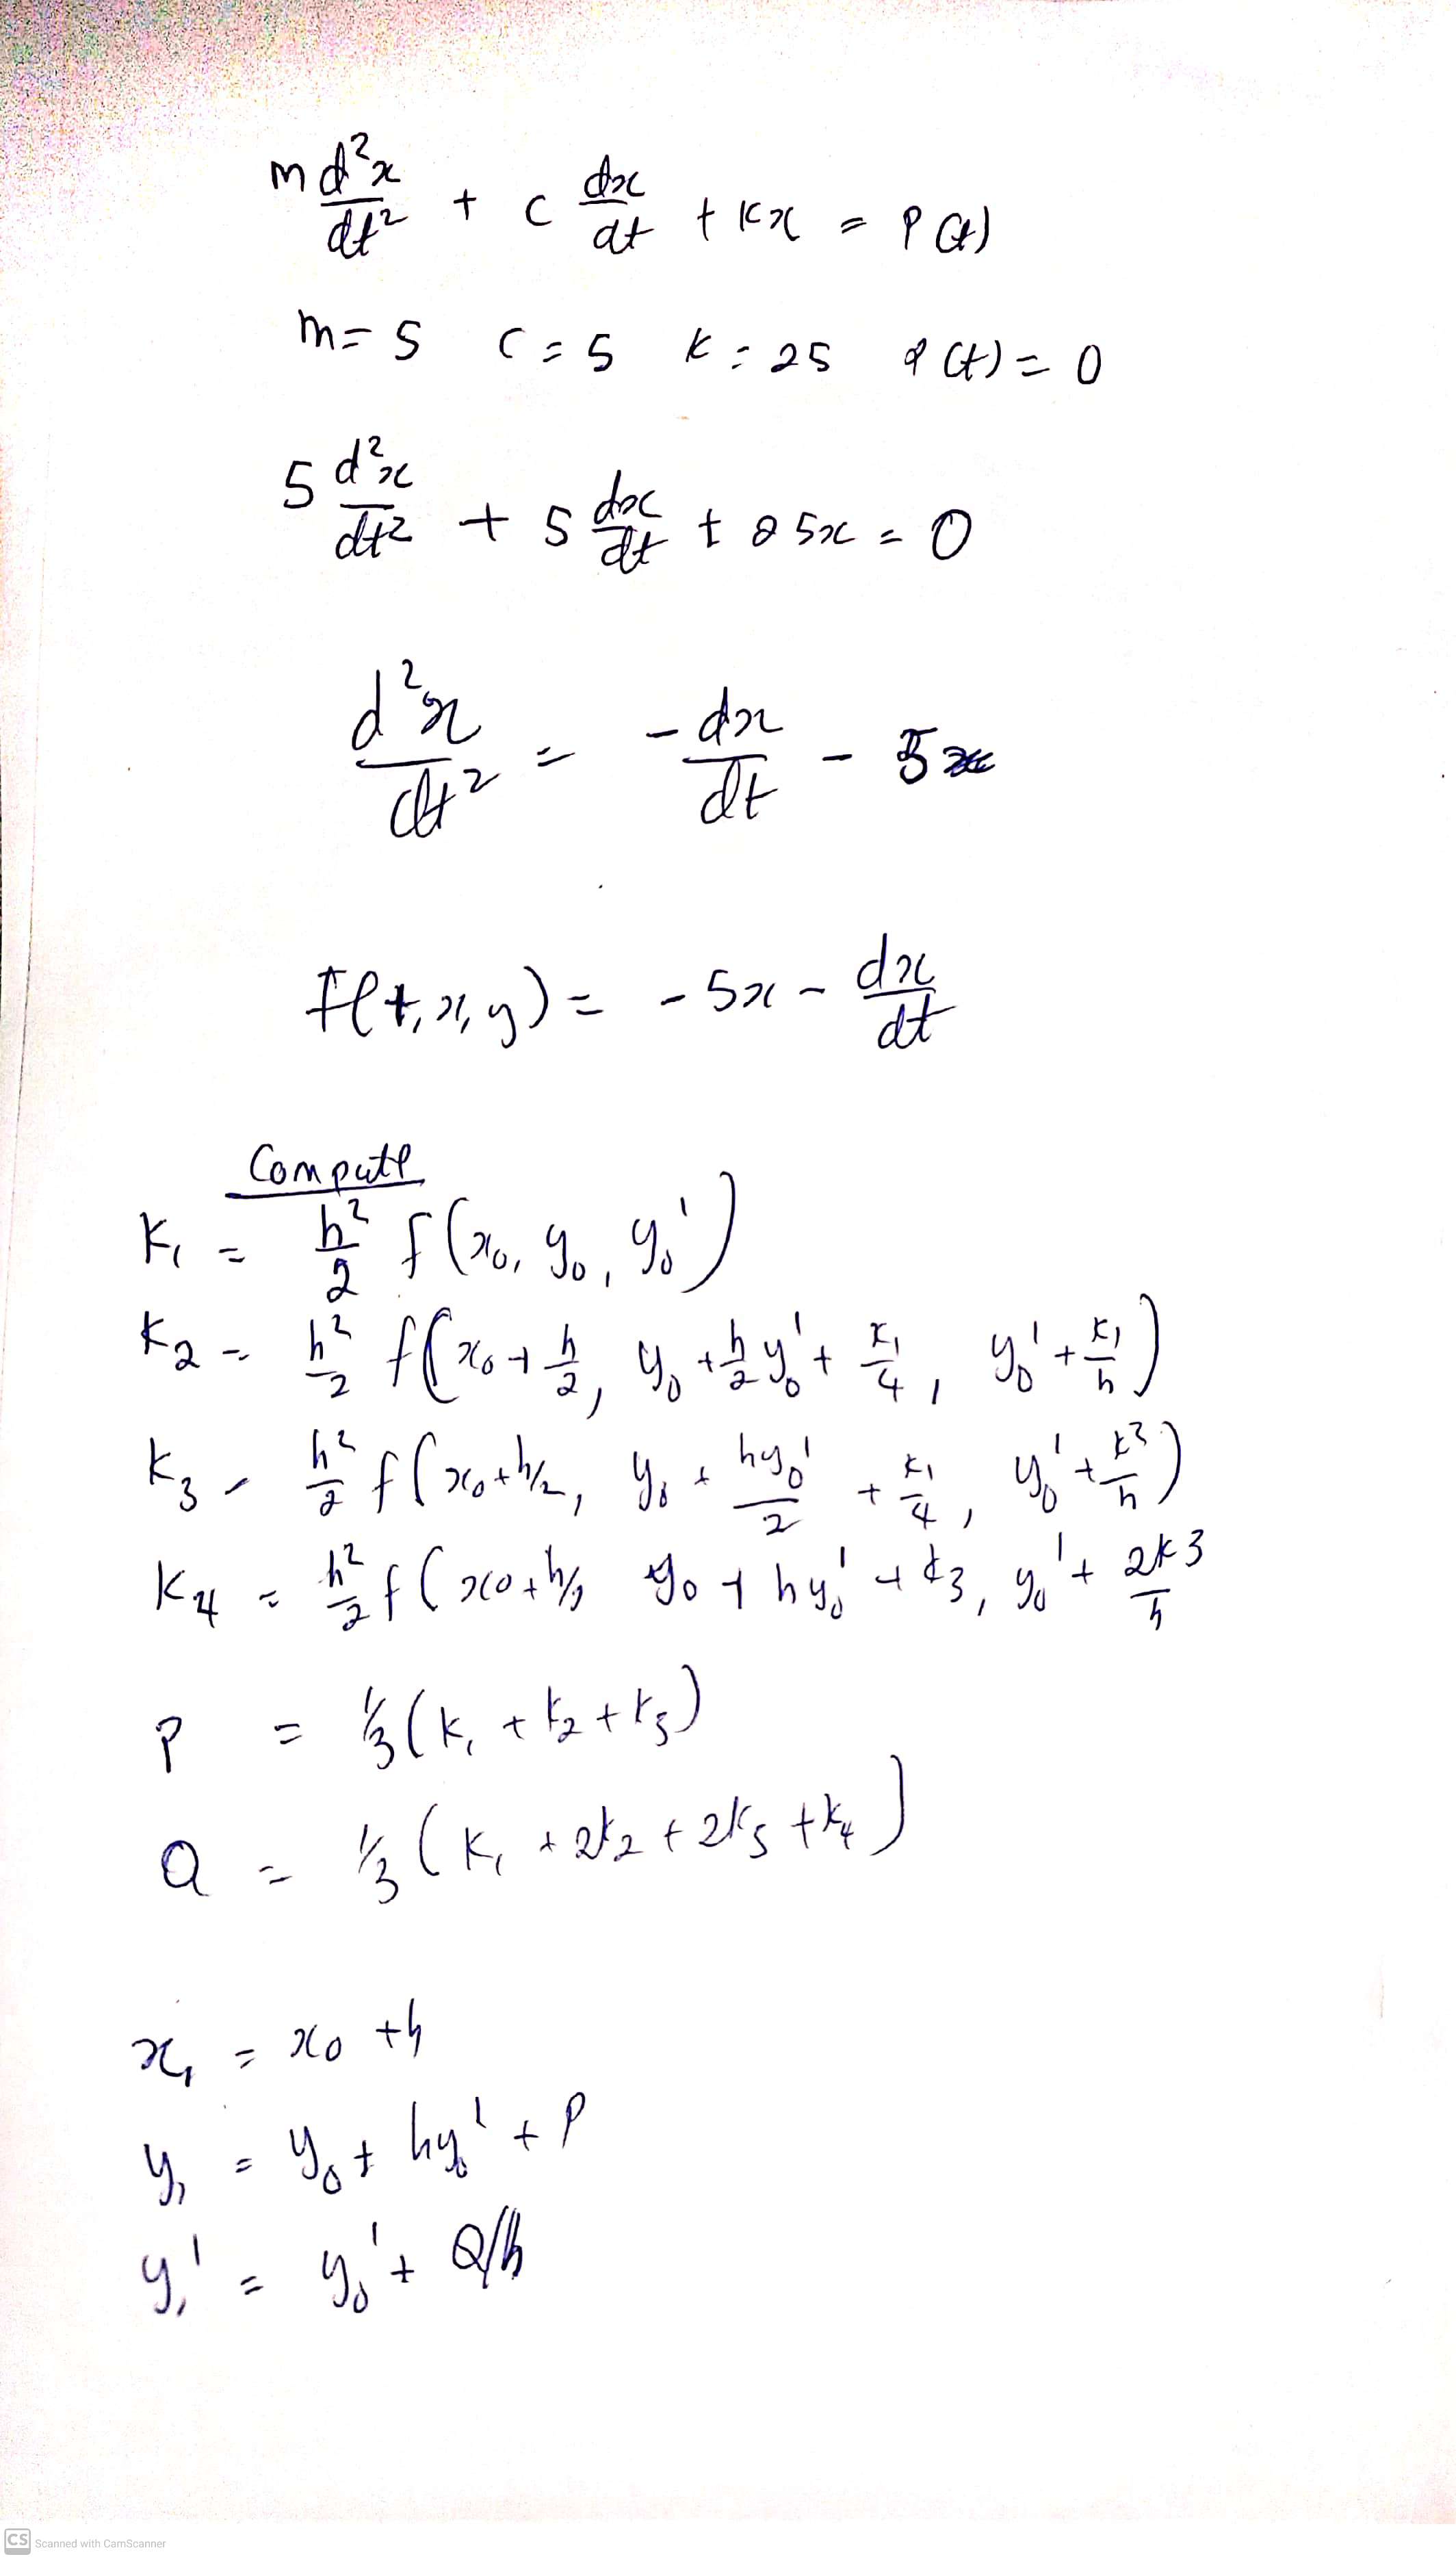 m d²x/dt² + c dx/dt + kx = P(t)
m = 5 c = 5 k = 25 P(t) = 0
5 d²x/dt² + 5 dx/dt + 25x = 0
d²x/dt² = -dx/dt - 5x
f(t, x, y) = -5x - dx/dt
Compute
K₁ = h²/2 f(x₀, y₀, y₀')
K₂ = h²/2 f(x₀ + h/2, y₀ + h/2 y₀' + K₁/4, y₀' + K₁/h)
K₃ = h²/2 f(x₀ + h/2, y₀ + hy₀'/2 + K₁/4, y₀' + K₂/h)
K₄ = h²/2 f(x₀ + h/2 y₀ + hy₀' + K₃, y₀' + 2K3/h
P = 1/3 (K₁ + K₂ + K₃)
Q = 1/3 (K₁ + 2K₂ + 2K₃ + K₄)
x₁ = x₀ + h
y₁ = y₀ + hy₀' + P
y₁' = y₀' + Q/h
CS Scanned with CamScanner